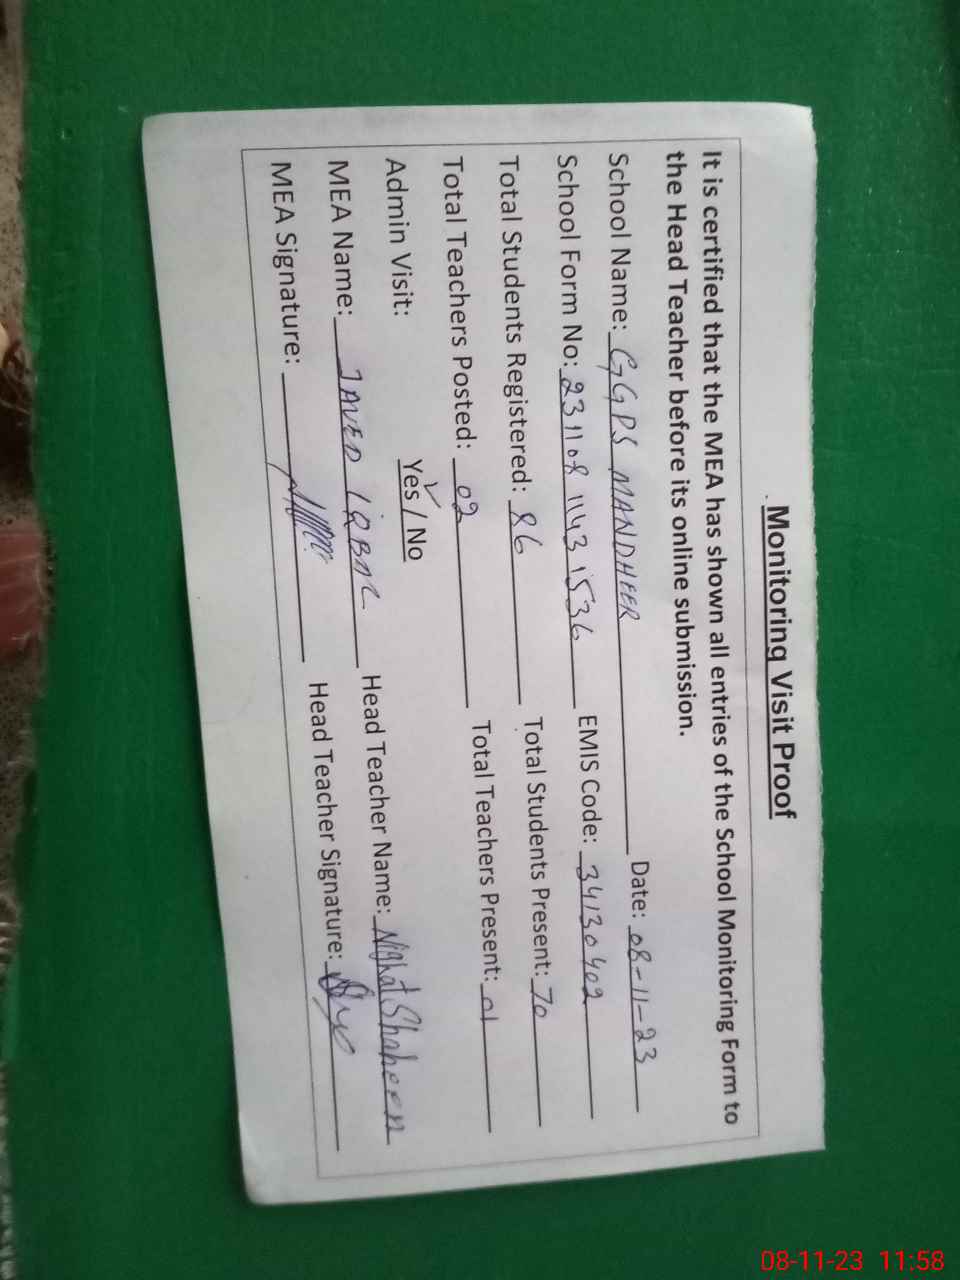 Monitoring Visit Proof
It is certified that the MEA has shown all entries of the School Monitoring Form to
the Head Teacher before its online submission.
School Name: GGPS MANDHEER Date: 08-11-23
School Form No: 231108 1143 1536 EMIS Code: 34130402
Total Students Registered: 86 Total Students Present: 70
Total Teachers Posted: 02 Total Teachers Present: 01
Admin Visit: Yes / No
MEA Name: JAVED IQBAL Head Teacher Name: Nighat Shaheen
MEA Signature: Head Teacher Signature:
08-11-23 11:58